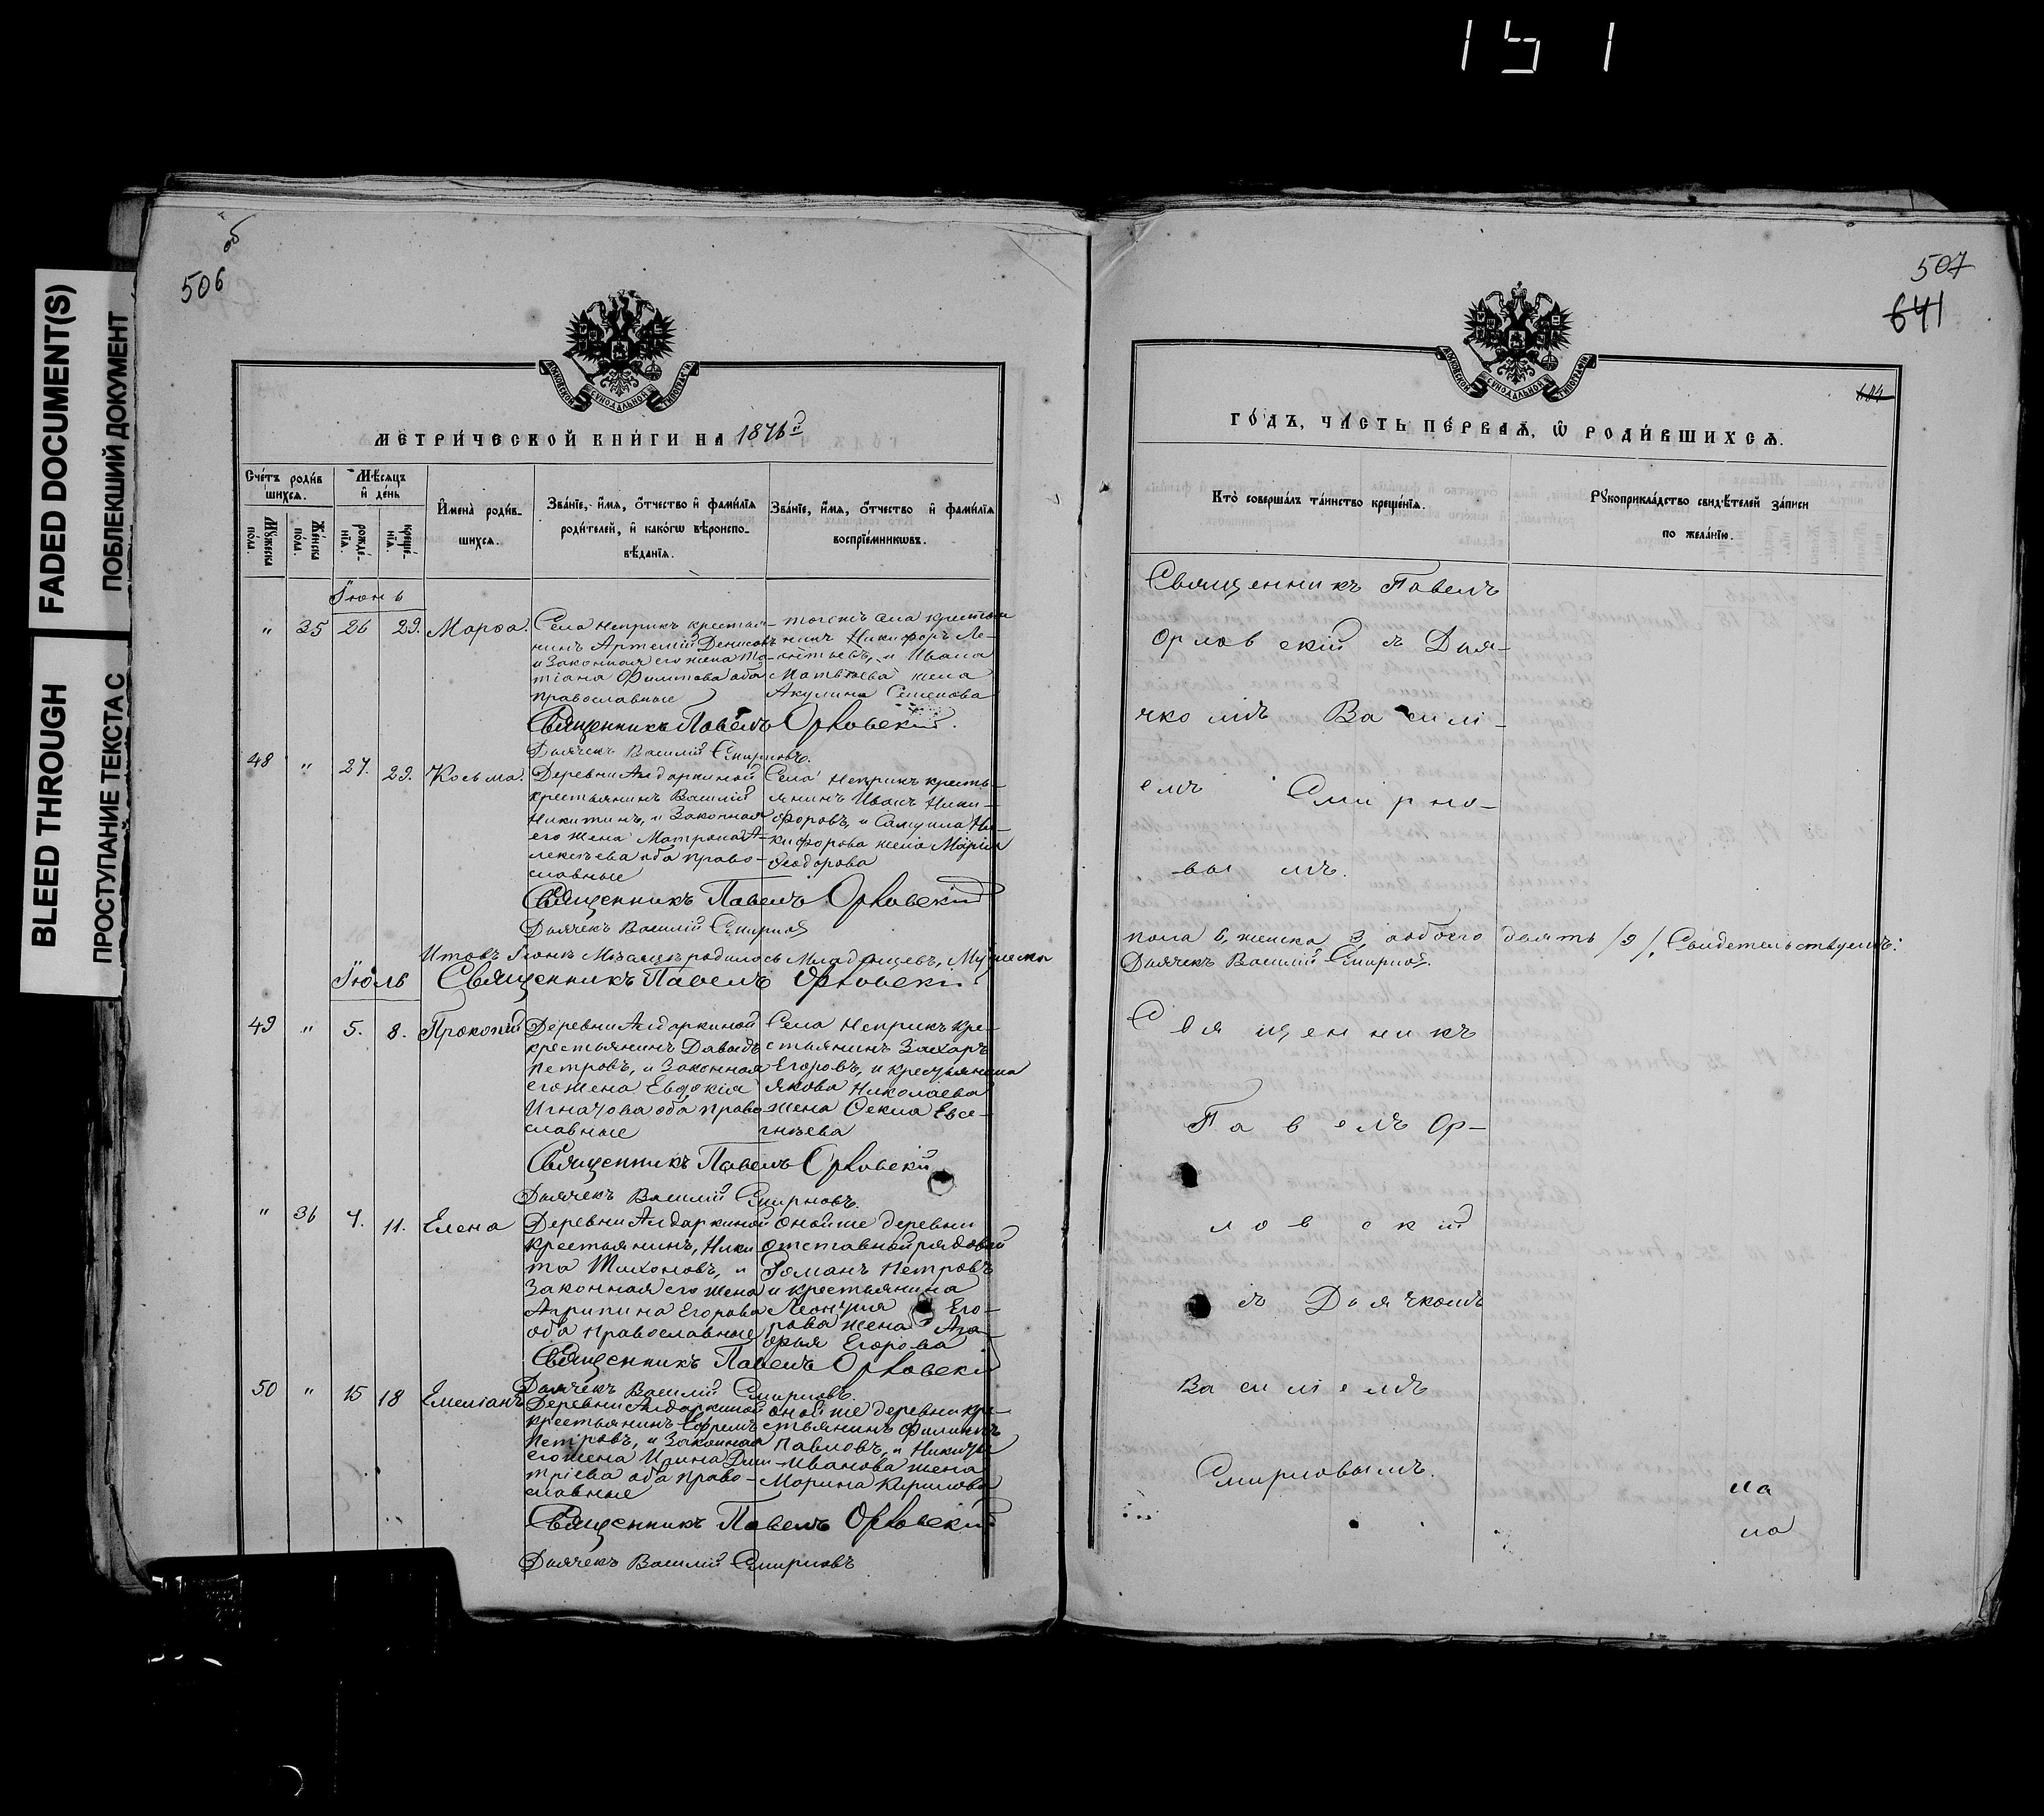 151
FADED DOCUMENT(S)
ПОБЛЕКШИЙ ДОКУМЕНТ
BLEED THROUGH
ПРОСТУПАНИЕ ТЕКСТА С
506
об
МЕТРИ́ЧЕСКОЙ КНИ́ГИ НА 1876й
Сче́тъ роди́в
шихся.
Мѣ́сяцъ
и҆ де́нь
И҆мена̀ роди́в-
шихся.
Зва́нїе, и҆́мя, ѻ҆́тчество и҆ фами́лїя
роди́телей, и҆ како́гѡ вѣроиспо-
вѣ́данїя.
Зва́нїе, и҆́мя, ѻ҆́тчество и҆ фами́лїя
воспрїе́мникѡвъ.
Мꙋ́жеска
по́ла.
Же́нска
по́ла.
рожде́-
нїя.
креще́-
нїя.
Іюнь
" 35 26 29. Марѳа.
Села Неприкъ крестья-
нинъ Артемій Денисовъ
и законная его жена Та-
тіана Филипова оба
православные
тогоже села крестья
нинъ Никифоръ Ле-
онтьевъ, и Ивана
Матвѣева жена
Акулина Семенова
Священникъ Павелъ Орловскій.
Дьячекъ Василій Смирновъ.
48 " 27. 29. Косьма.
Деревни Алдаркиной
крестьянинъ Василій
Никитинъ, и законная
его жена Матрона А-
лексѣева оба право-
славные
Села Неприкъ кресть-
янинъ Иванъ Ники-
форовъ, и Самуила Ни-
кифорова жена Марія
Ѳеодорова
Священникъ Павелъ Орловскій
Дьячекъ Василій Смирнов
Итовъ Іюнѣ Мѣсяцѣ родилось Младенцевъ, Мужеска
Іюль
Священникъ Павелъ Орловскій
49 " 5. 8. Прокопій
Деревни Алдаркиной
крестьянинъ Давыдъ
Петровъ, и законная
его жена Евдокія
Игнатова оба право
славные
Села Неприкъ кре-
стьянинъ Захаръ
Егоровъ, и крестьянина
Якова Николаева
жена Ѳекла Евсе-
гнѣева
Священникъ Павелъ Орловскій
Дьячекъ Василій Смирновъ.
" 36 7. 11. Елена
Деревни Алдаркиной
крестьянинъ, Ники
та Тихоновъ, и
законная его жена
Агрипина Егорова
оба православные
оной же деревни
отставной рядовой
Романъ Петровъ
и крестьянина
Леонтия Его-
рова жена Ага-
фья Егорова
Священникъ Павелъ Орловскій
Дьячекъ Василій Смирновъ.
50 " 15 18 Емеліанъ
Деревни Алдаркиной
крестьянинъ Ефремъ
Петровъ, и законная
его жена Ирина Дми-
тріева оба право-
славные
оной же деревни кре-
стьянинъ Филиппъ
Павловъ, и Никиты
Иванова жена
Марина Кирилова
Священникъ Павелъ Орловскій
Дьячекъ Василій Смирновъ
507
641
ГО́ДЪ, ЧА́СТЬ ПЕ́РВАЯ, Ѡ҆ РОДИ́ВШИХСЯ.
Кто̀ соверша́лъ та́инство креще́нїя.
Рꙋкоприкла́дство свидѣ́телей за́писи
по жела́нїю.
Священникъ Павелъ
Орловскій съ Дья-
чкомъ Василі-
емъ Смирно-
вымъ.
пола 6, женска 3, аобоего девять /9/. Свидетельствуемъ:
Дьячекъ Василій Смирнов.
Священникъ
Павелъ Ор-
ловскій
съ Дьячкомъ
Василіемъ
Смирновымъ.
на
на